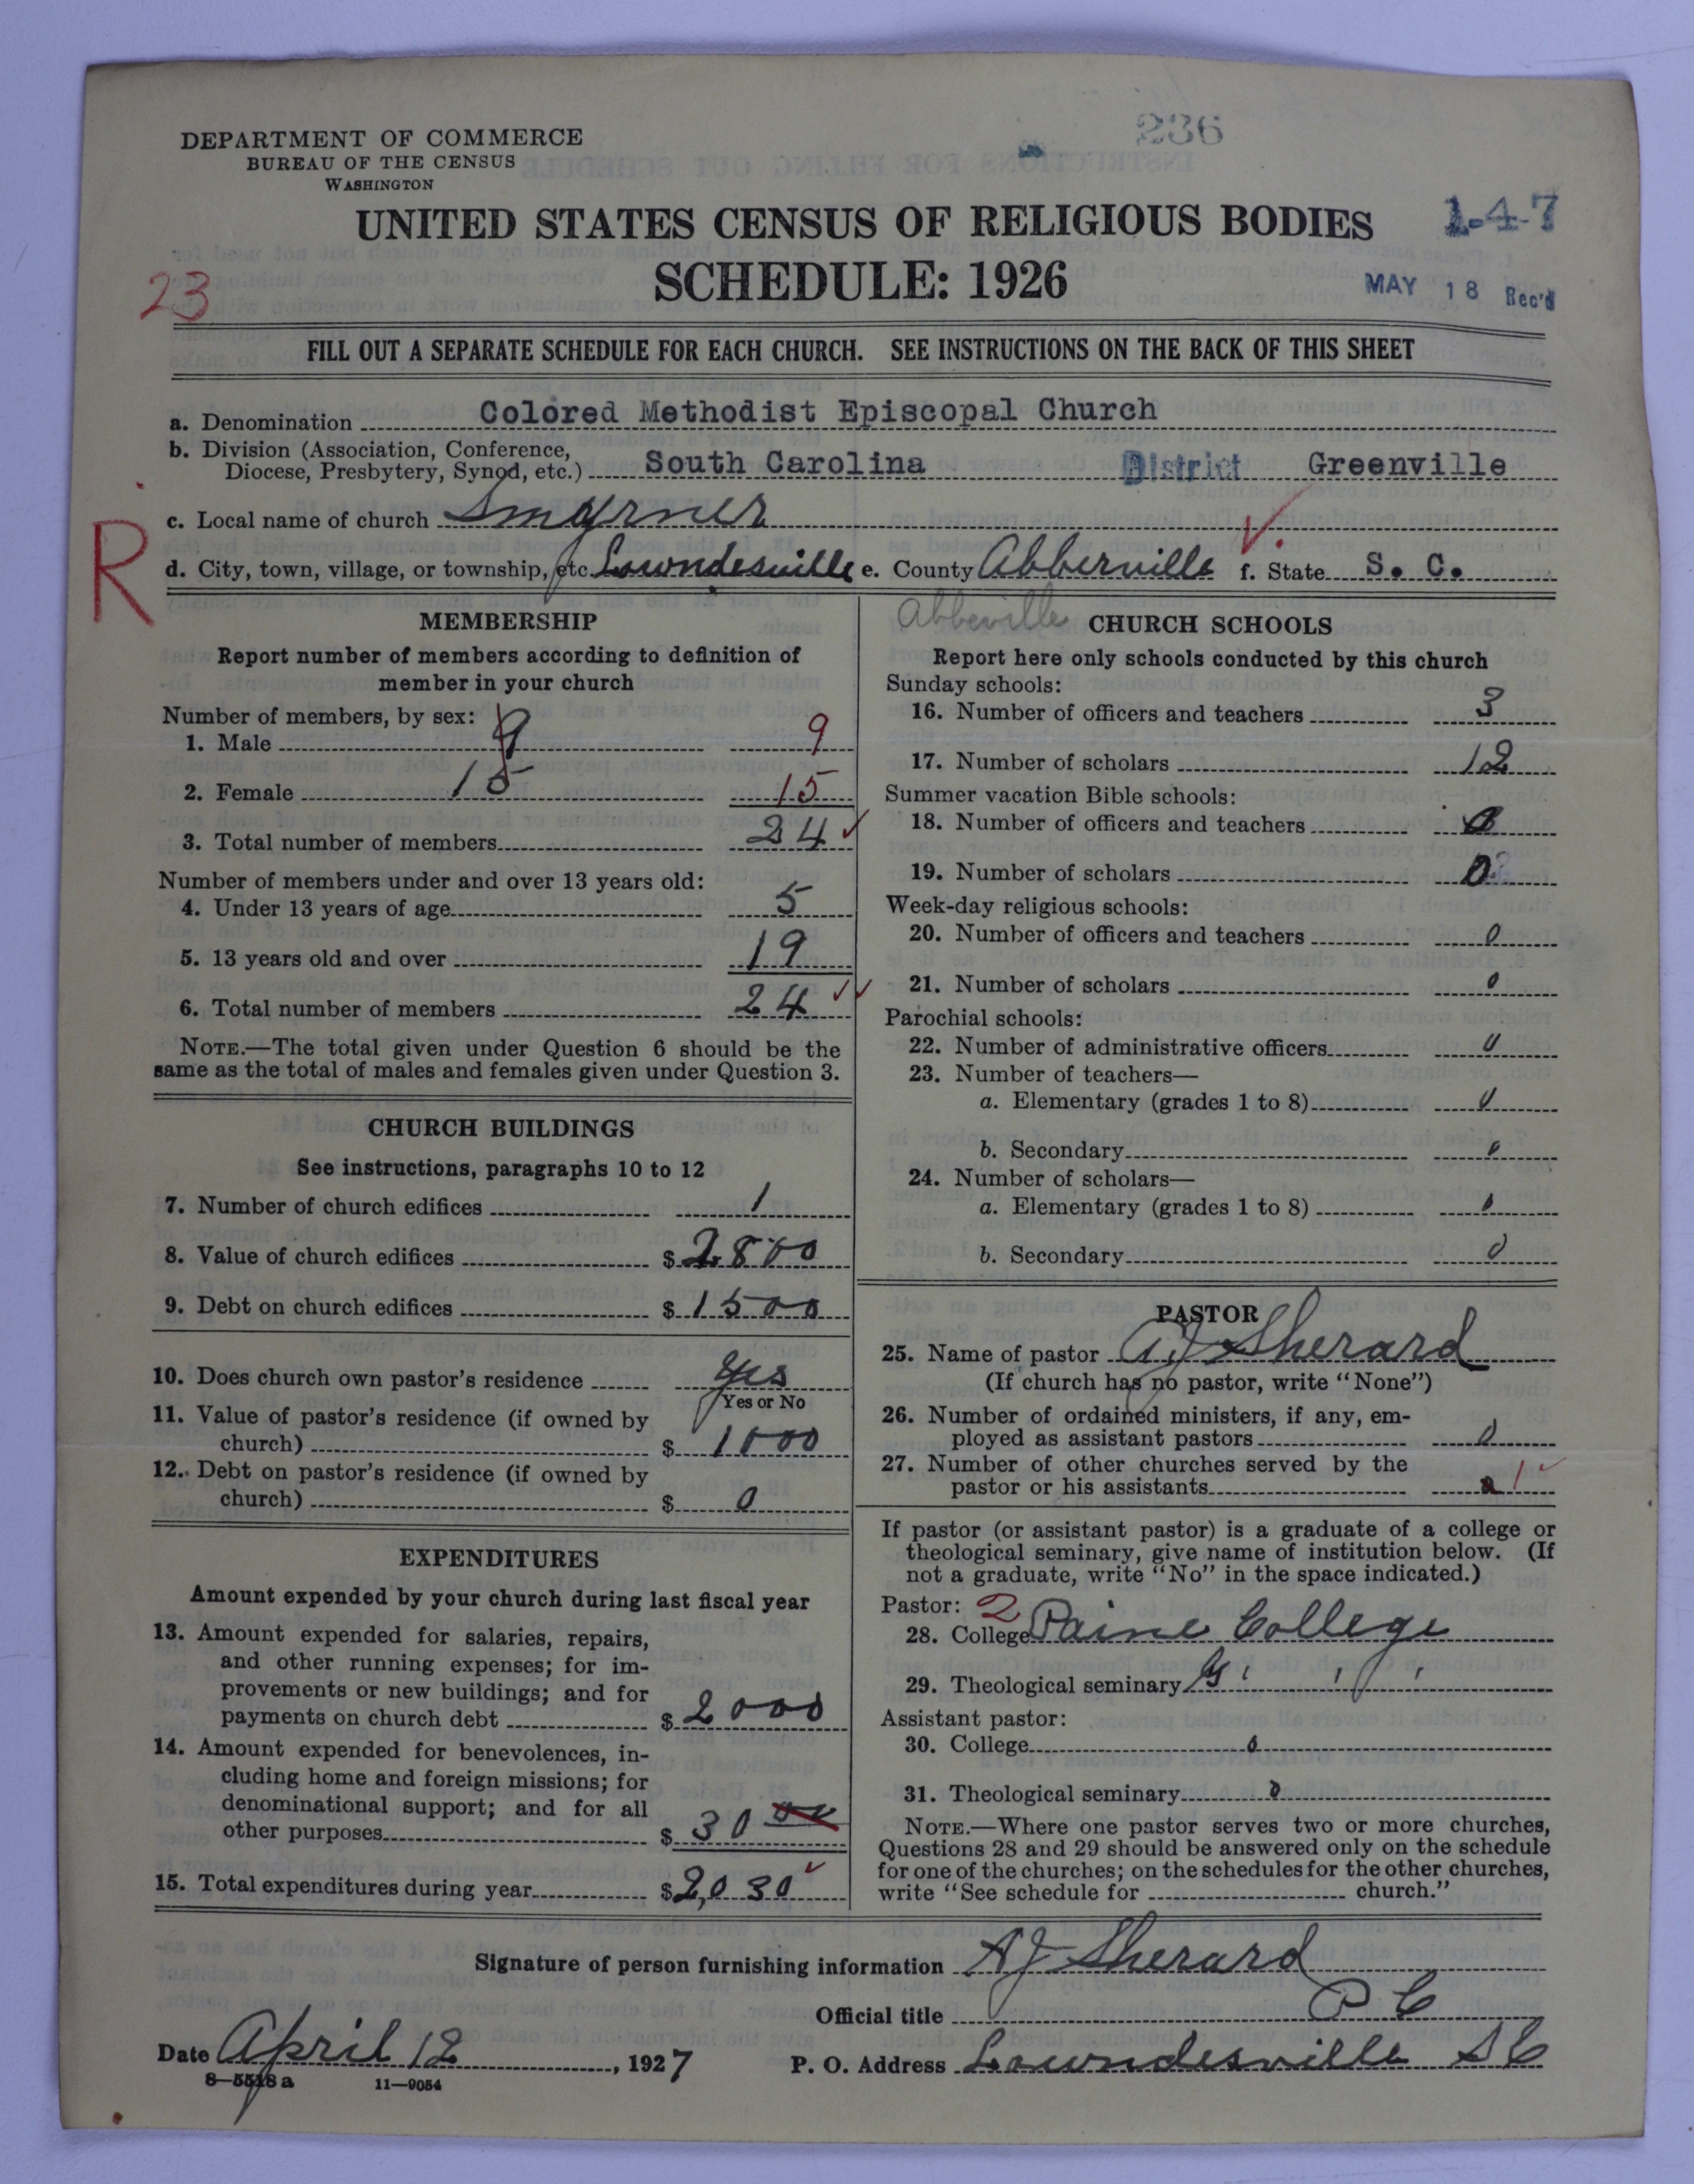 236
DEPARTMENT OF COMMERCE
BUREAU OF THE CENSUS
WASHINGTON
UNITED STATES CENSUS OF RELIGIOUS BODIES
1-4-7
SCHEDULE: 1926
MAY 18 Rec'd
23
FILL OUT A SEPARATE SCHEDULE FOR EACH CHURCH. SEE INSTRUCTIONS ON THE BACK OF THIS SHEET
a. Denomination Colored Methodist Episcopal Church
b. Division (Association, Conference,
Diocese, Presbytery, Synod, etc.) South Carolina District Greenville
c. Local name of church Smyrner
R
d. City, town, village, or township, etc. Lowndesville e. County Abberville f. State S. C.
Abbeville
MEMBERSHIP
Report number of members according to definition of
member in your church
Number of members, by sex:
1. Male 9 9
2. Female 15 15
3. Total number of members 24 ✓
Number of members under and over 13 years old:
4. Under 13 years of age 5
5. 13 years old and over 19
6. Total number of members 24 ✓✓
NOTE.—The total given under Question 6 should be the
same as the total of males and females given under Question 3.
CHURCH BUILDINGS
See instructions, paragraphs 10 to 12
7. Number of church edifices 1
8. Value of church edifices $ 2800
9. Debt on church edifices $ 1500
10. Does church own pastor's residence Yes
Yes or No
11. Value of pastor's residence (if owned by
church) $ 1000
12. Debt on pastor's residence (if owned by
church) $ 0
EXPENDITURES
Amount expended by your church during last fiscal year
13. Amount expended for salaries, repairs,
and other running expenses; for im-
provements or new buildings; and for
payments on church debt $ 2000
14. Amount expended for benevolences, in-
cluding home and foreign missions; for
denominational support; and for all
other purposes $ 30 00
15. Total expenditures during year $ 2,030 ✓
CHURCH SCHOOLS
Report here only schools conducted by this church
Sunday schools:
16. Number of officers and teachers 3
17. Number of scholars 12
Summer vacation Bible schools:
18. Number of officers and teachers 0
19. Number of scholars 0
Week-day religious schools:
20. Number of officers and teachers 0
21. Number of scholars 0
Parochial schools:
22. Number of administrative officers 0
23. Number of teachers—
a. Elementary (grades 1 to 8) 0
b. Secondary 0
24. Number of scholars—
a. Elementary (grades 1 to 8) 0
b. Secondary 0
PASTOR
25. Name of pastor AJ Sherard
(If church has no pastor, write "None")
26. Number of ordained ministers, if any, em-
ployed as assistant pastors 0
27. Number of other churches served by the
pastor or his assistants 1 ✓
If pastor (or assistant pastor) is a graduate of a college or
theological seminary, give name of institution below. (If
not a graduate, write "No" in the space indicated.)
Pastor: 2
28. College Paine College
29. Theological seminary
Assistant pastor:
30. College 0
31. Theological seminary 0
NOTE.—Where one pastor serves two or more churches,
Questions 28 and 29 should be answered only on the schedule
for one of the churches; on the schedules for the other churches,
write "See schedule for church."
Signature of person furnishing information AJ Sherard
Official title P C
Date April 12, 1927 P. O. Address Lowndesville S C
8—5518 a 11—9054